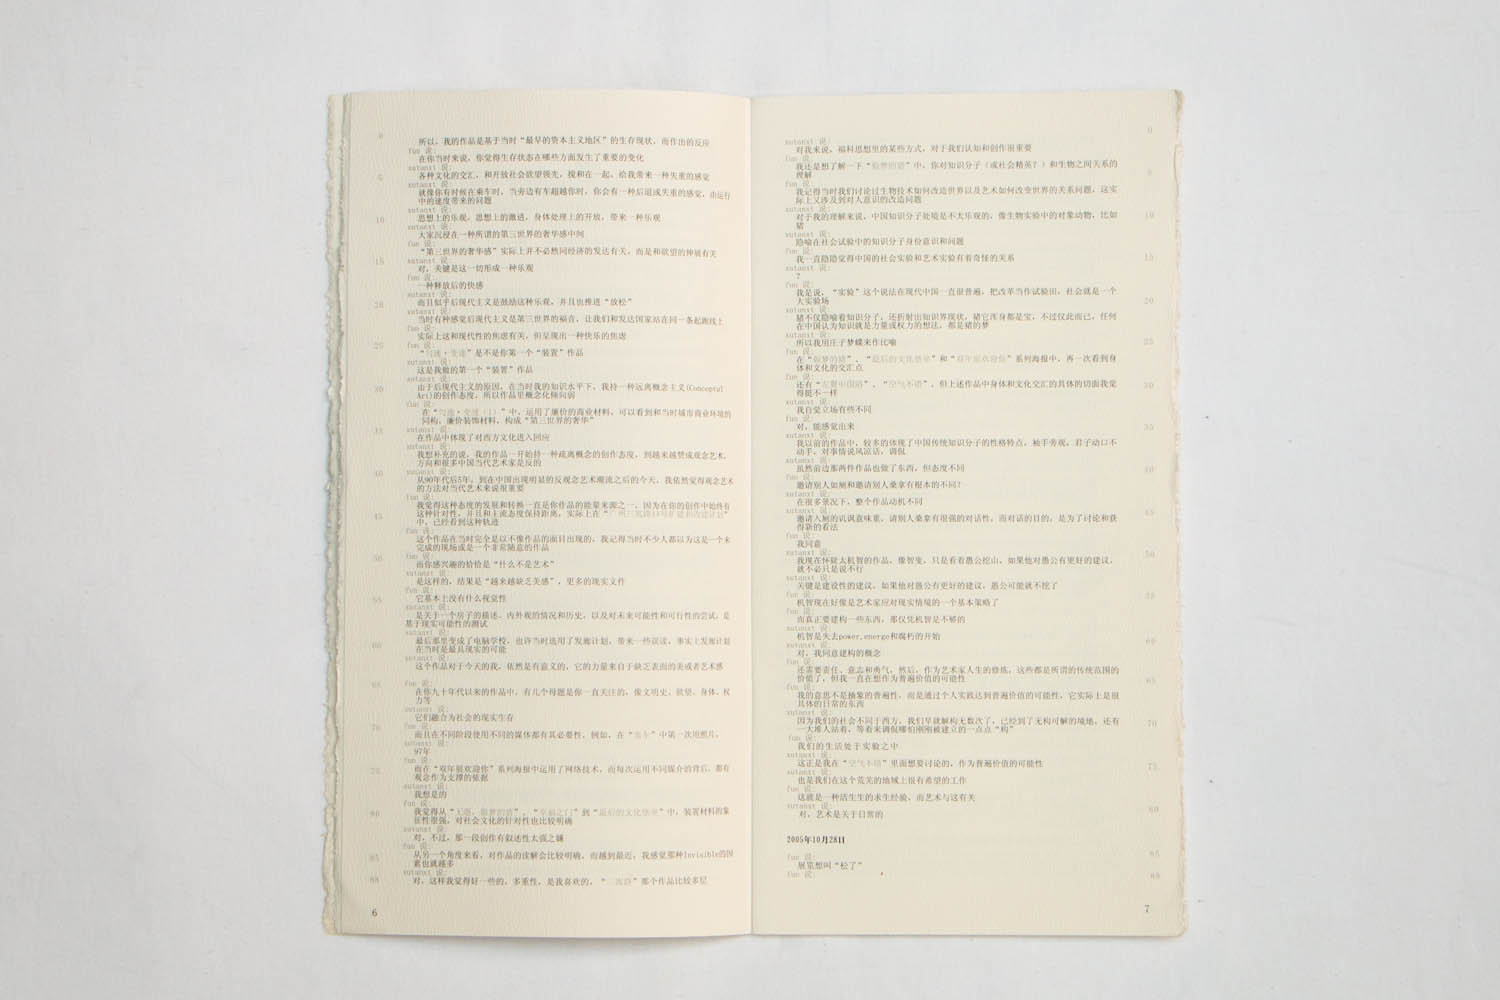 0
所以，我的作品是基于当时“最早的资本主义地区”的生存现状，而作出的反应
fun 说:
在你当时来说，你觉得生存状态在哪些方面发生了重要的变化
xutanxt 说:
5
各种文化的交汇，和开放社会欲望领先，搅和在一起，给我带来一种失重的感觉
xutanxt 说:
就像你有时候在乘车时，当旁边有车超越你时，你会有一种后退或失重的感觉，由运行
中的速度带来的问题
xutanxt 说:
10
思想上的乐观，思想上的激进，身体处理上的开放，带来一种乐观
xutanxt 说:
大家沉浸在一种所谓的第三世界的奢华感中间
fun 说:
“第三世界的奢华感”实际上并不必然同经济的发达有关，而是和欲望的伸展有关
xutanxt 说:
15
对，关键是这一切形成一种乐观
fun 说:
一种释放后的快感
xutanxt 说:
20
而且似乎后现代主义是鼓励这种乐观，并且也推进“放松”
xutanxt 说:
当时有种感觉后现代主义是第三世界的福音，让我们和发达国家站在同一条起跑线上
fun 说:
实际上这和现代性的焦虑有关，但呈现出一种快乐的焦虑
fun 说:
25
“匀速·变速”是不是你第一个“装置”作品
xutanxt 说:
这是我做的第一个“装置”作品
xutanxt 说:
30
由于后现代主义的原因，在当时我的知识水平下，我持一种远离概念主义(Conceptual
Art)的创作态度，所以作品里概念化倾向弱
fun 说:
在“匀速·变速（1）”中，运用了廉价的商业材料，可以看到和当时城市商业环境的
同构，廉价装饰材料，构成“第三世界的奢华”
xutanxt 说:
在作品中体现了对西方文化进入回应
xutanxt 说:
我想补充的说，我的作品一开始持一种疏离概念的创作态度，到越来越赞成观念艺术，
方向和很多中国当代艺术家是反的
xutanxt 说:
40
从90年代后5年，到在中国出现明显的反观念艺术潮流之后的今天，我依然觉得观念艺术
的方法对当代艺术来说很重要
fun 说:
我觉得这种态度的发展和转换一直是你作品的能量来源之一，因为在你的创作中始终有
45
这种针对性，并且和主流态度保持距离，实际上在“广州三育路14号扩建和改建计划”
中，已经看到这种轨迹
fun 说:
这个作品在当时完全是以不像作品的面目出现的，我记得当时不少人都以为这是一个未
完成的现场或是一个非常随意的作品
fun 说:
50
而你感兴趣的恰恰是“什么不是艺术”
xutanxt 说:
是这样的，结果是“越来越缺乏美感”，更多的现实文件
fun 说:
55
它基本上没有什么视觉性
xutanxt 说:
是关于一个房子的描述，内外观的情况和历史，以及对未来可能性和可行性的尝试，是
基于现实可能性的测试
xutanxt 说:
60
最后那里变成了电脑学校，也许当时选用了发廊计划，带来一些误读，事实上发廊计划
在当时是最具现实的可能
xutanxt 说:
这个作品对于今天的我，依然是有意义的，它的力量来自于缺乏表面的美或者艺术感
65
fun 说:
在你九十年代以来的作品中，有几个母题是你一直关注的，像文明史，欲望，身体，权
力等
xutanxt 说:
它们融合为社会的现实生存
70
fun 说:
而且在不同阶段使用不同的媒体都有其必要性，例如，在“
”中第一次用照片，
xutanxt 说:
97年
fun 说:
75
而在“双年展欢迎你”系列海报中运用了网络技术，而每次运用不同媒介的背后，都有
观念作为支撑的依据
xutanxt 说:
我想是的
fun 说:
我觉得从“
做梦的猪”，“幸福之门”到“最后的文化堡垒”中，装置材料的象
征性很强，对社会文化的针对性也比较明确
xutanxt 说:
对，不过，那一段创作有叙述性太强之嫌
fun 说:
85
从另一个角度来看，对作品的读解会比较明确，而越到最近，我感觉那种Invisible的因
素也就越多
xutanxt 说:
88
对，这样我觉得好一些的，多重性，是我喜欢的，“三育路”那个作品比较多层
6
0
xutanxt 说:
对我来说，福科思想里的某些方式，对于我们认知和创作很重要
fun 说:
我还是想了解一下“做梦的猪”中，你对知识分子（或社会精英？）和生物之间关系的
5
理解
fun 说:
我记得当时我们讨论过生物技术如何改造世界以及艺术如何改变世界的关系问题，这实
际上又涉及到对人意识的改造问题
xutanxt 说:
10
对于我的理解来说，中国知识分子处境是不太乐观的，像生物实验中的对象动物，比如
猪
xutanxt 说:
隐喻在社会试验中的知识分子身份意识和问题
fun 说:
15
我一直隐隐觉得中国的社会实验和艺术实验有着奇怪的关系
xutanxt 说:
?
fun 说:
我是说，“实验”这个说法在现代中国一直很普遍，把改革当作试验田，社会就是一个
20
大实验场
xutanxt 说:
猪不仅隐喻着知识分子，还折射出知识界现状，猪它浑身都是宝，不过仅此而已，任何
在中国认为知识就是力量或权力的想法，都是猪的梦
xutanxt 说:
25
所以我用庄子梦蝶来作比喻
fun 说:
在“做梦的猪”、“最后的文化堡垒”和“双年展欢迎你”系列海报中，再一次看到身
体和文化的交汇点
fun 说:
30
还有“左翼中国猪”、“空气不错”，但上述作品中身体和文化交汇的具体的切面我觉
得挺不一样
xutanxt 说:
我自觉立场有些不同
fun 说:
35
对，能感觉出来
xutanxt 说:
我以前的作品中，较多的体现了中国传统知识分子的性格特点，袖手旁观，君子动口不
动手，对事情说风凉话，调侃
xutanxt 说:
40
虽然前边那两件作品也做了东西，但态度不同
fun 说:
邀请别人如厕和邀请别人桑拿有根本的不同？
xutanxt 说:
在很多景况下，整个作品动机不同
xutanxt 说:
45
邀请入厕的讥讽意味重，请别人桑拿有很强的对话性，而对话的目的，是为了讨论和获
得新的看法
fun 说:
我同意
xutanxt 说:
50
我现在怀疑太机智的作品，像智叟，只是看着愚公挖山，如果他对愚公有更好的建议，
就不必只是说不行
xutanxt 说:
关键是建设性的建议，如果他对愚公有更好的建议，愚公可能就不挖了
fun 说:
55
机智现在好像是艺术家应对现实情境的一个基本策略了
fun 说:
而真正要建构一些东西，那仅凭机智是不够的
xutanxt 说:
60
机智是失去power,energe和腐朽的开始
xutanxt 说:
对，我同意建构的概念
fun 说:
还需要责任、意志和勇气，然后，作为艺术家人生的修炼，这些都是所谓的传统范围的
65
价值了，但我一直在想作为普遍价值的可能性
fun 说:
我的意思不是抽象的普遍性，而是通过个人实践达到普遍价值的可能性，它实际上是很
具体的日常的东西
xutanxt 说:
70
因为我们的社会不同于西方，我们早就解构无数次了，已经到了无构可解的境地，还有
一大堆人站着，等着来调侃哪怕刚刚被建立的一点点“构”
fun 说:
我们的生活处于实验之中
xutanxt 说:
75
这正是我在“空气不错”里面想要讨论的，作为普遍价值的可能性
xutanxt 说:
也是我们在这个荒芜的地域上很有希望的工作
fun 说:
这就是一种活生生的求生经验，而艺术与这有关
xutanxt 说:
对，艺术是关于日常的
2005年10月28日
85
fun 说:
展览想叫“松了”
fun 说:
88
7